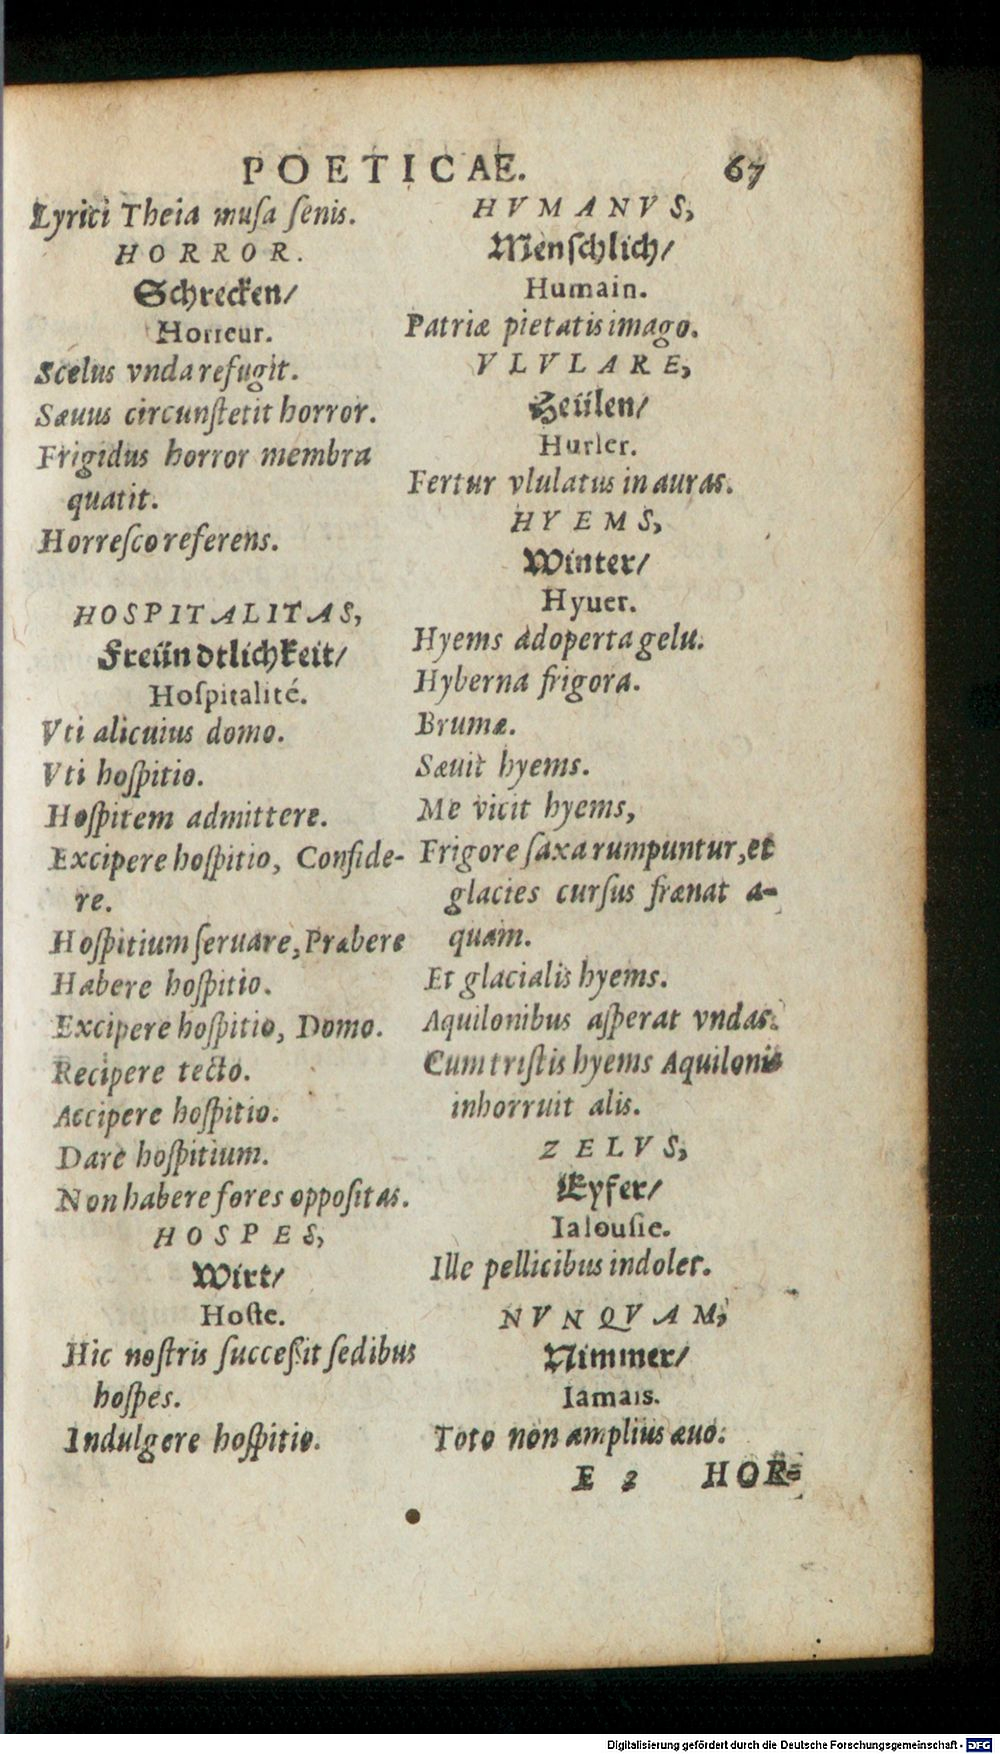 POETICAE. 67
Lyrici Theia musa senis.
HORROR.
Schrecken/
Horreur.
Scelus vnda refugit.
Sæuus circunstetit horror.
Frigidus horror membra
quatit.
Horresco referens.
HOSPITALITAS,
Freündtlichkeit/
Hospitalité.
Vti alicuius domo.
Vti hospitio.
Hospitem admittere.
Excipere hospitio, Conside-
re.
Hospitium seruare, Præbere
Habere hospitio.
Excipere hospitio, Domo.
Recipere tecto.
Accipere hospitio.
Dare hospitium.
Non habere fores oppositas.
HOSPES,
Wirt/
Hoste.
Hic nostris successit sedibus
hospes.
Indulgere hospitio.
HVMANVS,
Menschlich/
Humain.
Patriæ pietatis imago.
VLVLARE,
Heülen/
Hurler.
Fertur vlulatus in auras.
HYEMS,
Winter/
Hyuer.
Hyems adoperta gelu.
Hyberna frigora.
Brumæ.
Sæuit hyems.
Me vicit hyems,
Frigore saxa rumpuntur, et
glacies cursus frænat a-
quam.
Et glacialis hyems.
Aquilonibus asperat vndas.
Cum tristis hyems Aquilonis
inhorruit alis.
ZELVS,
Eyfer/
Ialousie.
Ille pellicibus indolet.
NVNQVAM,
Nimmer/
Iamais.
Toto non amplius æuo.
E 2 HOR-
Digitalisierung gefördert durch die Deutsche Forschungsgemeinschaft - DFG